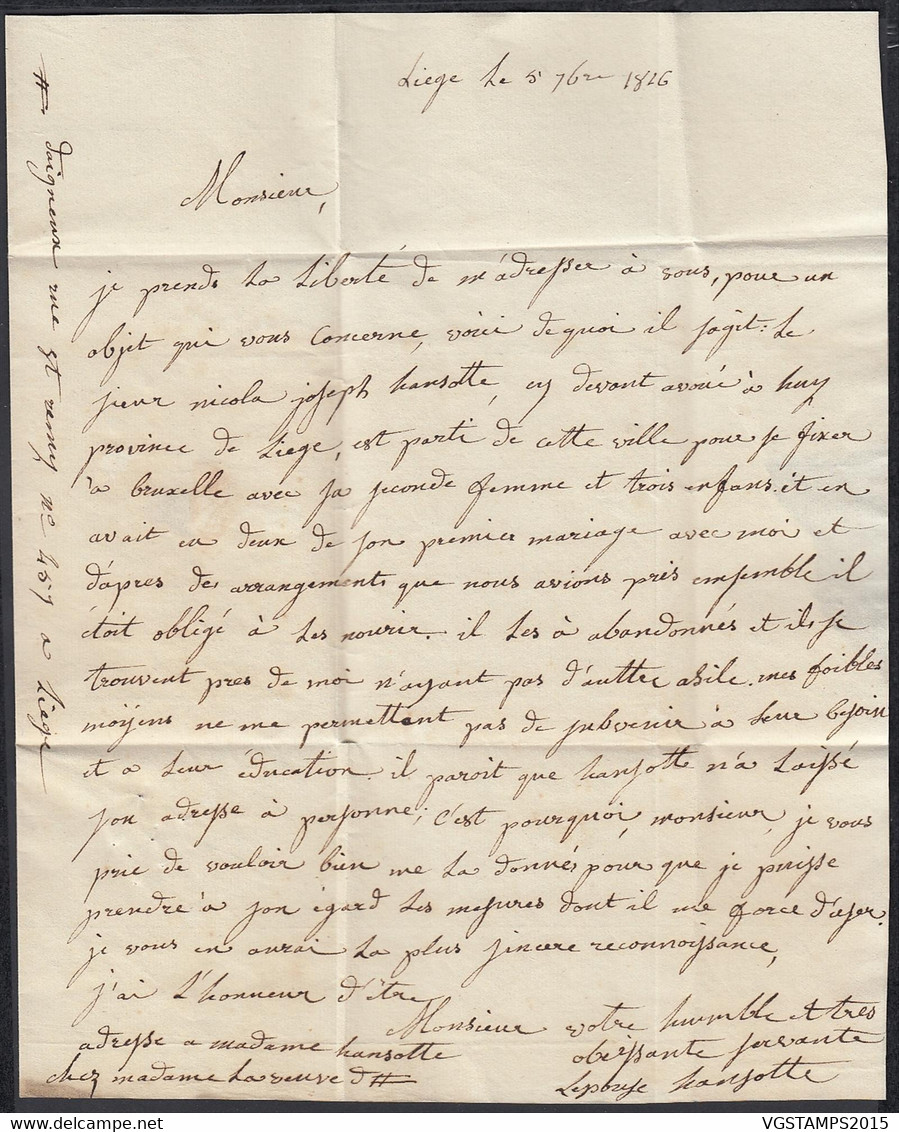 Liege Le 5 7bre 1826
Monsieur,
je prends La Liberté de m'adresser à vous, pour un
objet qui vous Concerne, voici de quoi il sagit: Le
sieur nicola joseph hansotte, cy devant avoué à huy
province de Liege, est parti de cette ville pour se fixer
à bruxelle avec sa seconde femme et trois enfans. et en
avait eu deux de son premier mariage avec moi et
d'apres des arrangements que nous avions pris ensemble il
étoit obligé à Les nourir. il Les à abandonnés et ils se
trouvent pres de moi n'ayant pas d'auttre asile. mes foibles
moÿens ne me permettent pas de subvenir à Leur besoin
et a Leur éducation. il paroit que hansott n'à Laissé
son adresse à personne; c'est pourquoi, monsieur, je vous
prie de vouloir bien me La donné, pour que je puisse
prendre à son égard Les mesures dont il me force d'user.
je vous en aurai La plus sincere reconnoissance,
j'ai L'honneur d'être
Monsieur votre humble et tres
obeissante servante
Lepouse hansotte
adresse a madame hansotte
chez madame La veuve d#
# daigneux rue st remy no 459 a Liege
VGSTAMPS2015